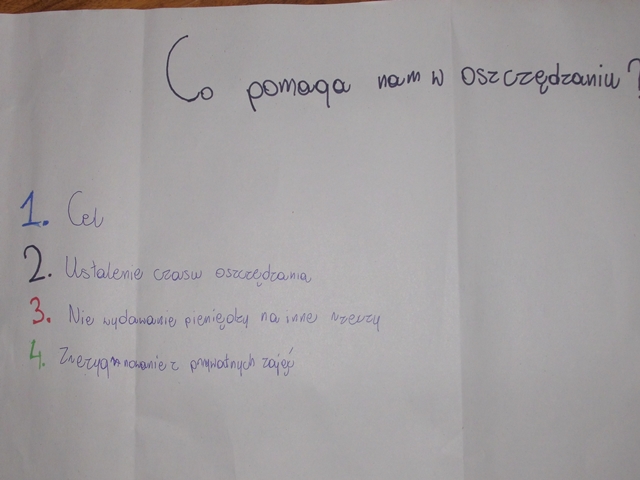 Co pomaga nam w oszczędzaniu?
1. Cel
2. Ustalenie czasu oszczędzania
3. Nie wydawanie pieniędzy na inne rzeczy
4. Zrezygnowanie z prywatnych zajęć